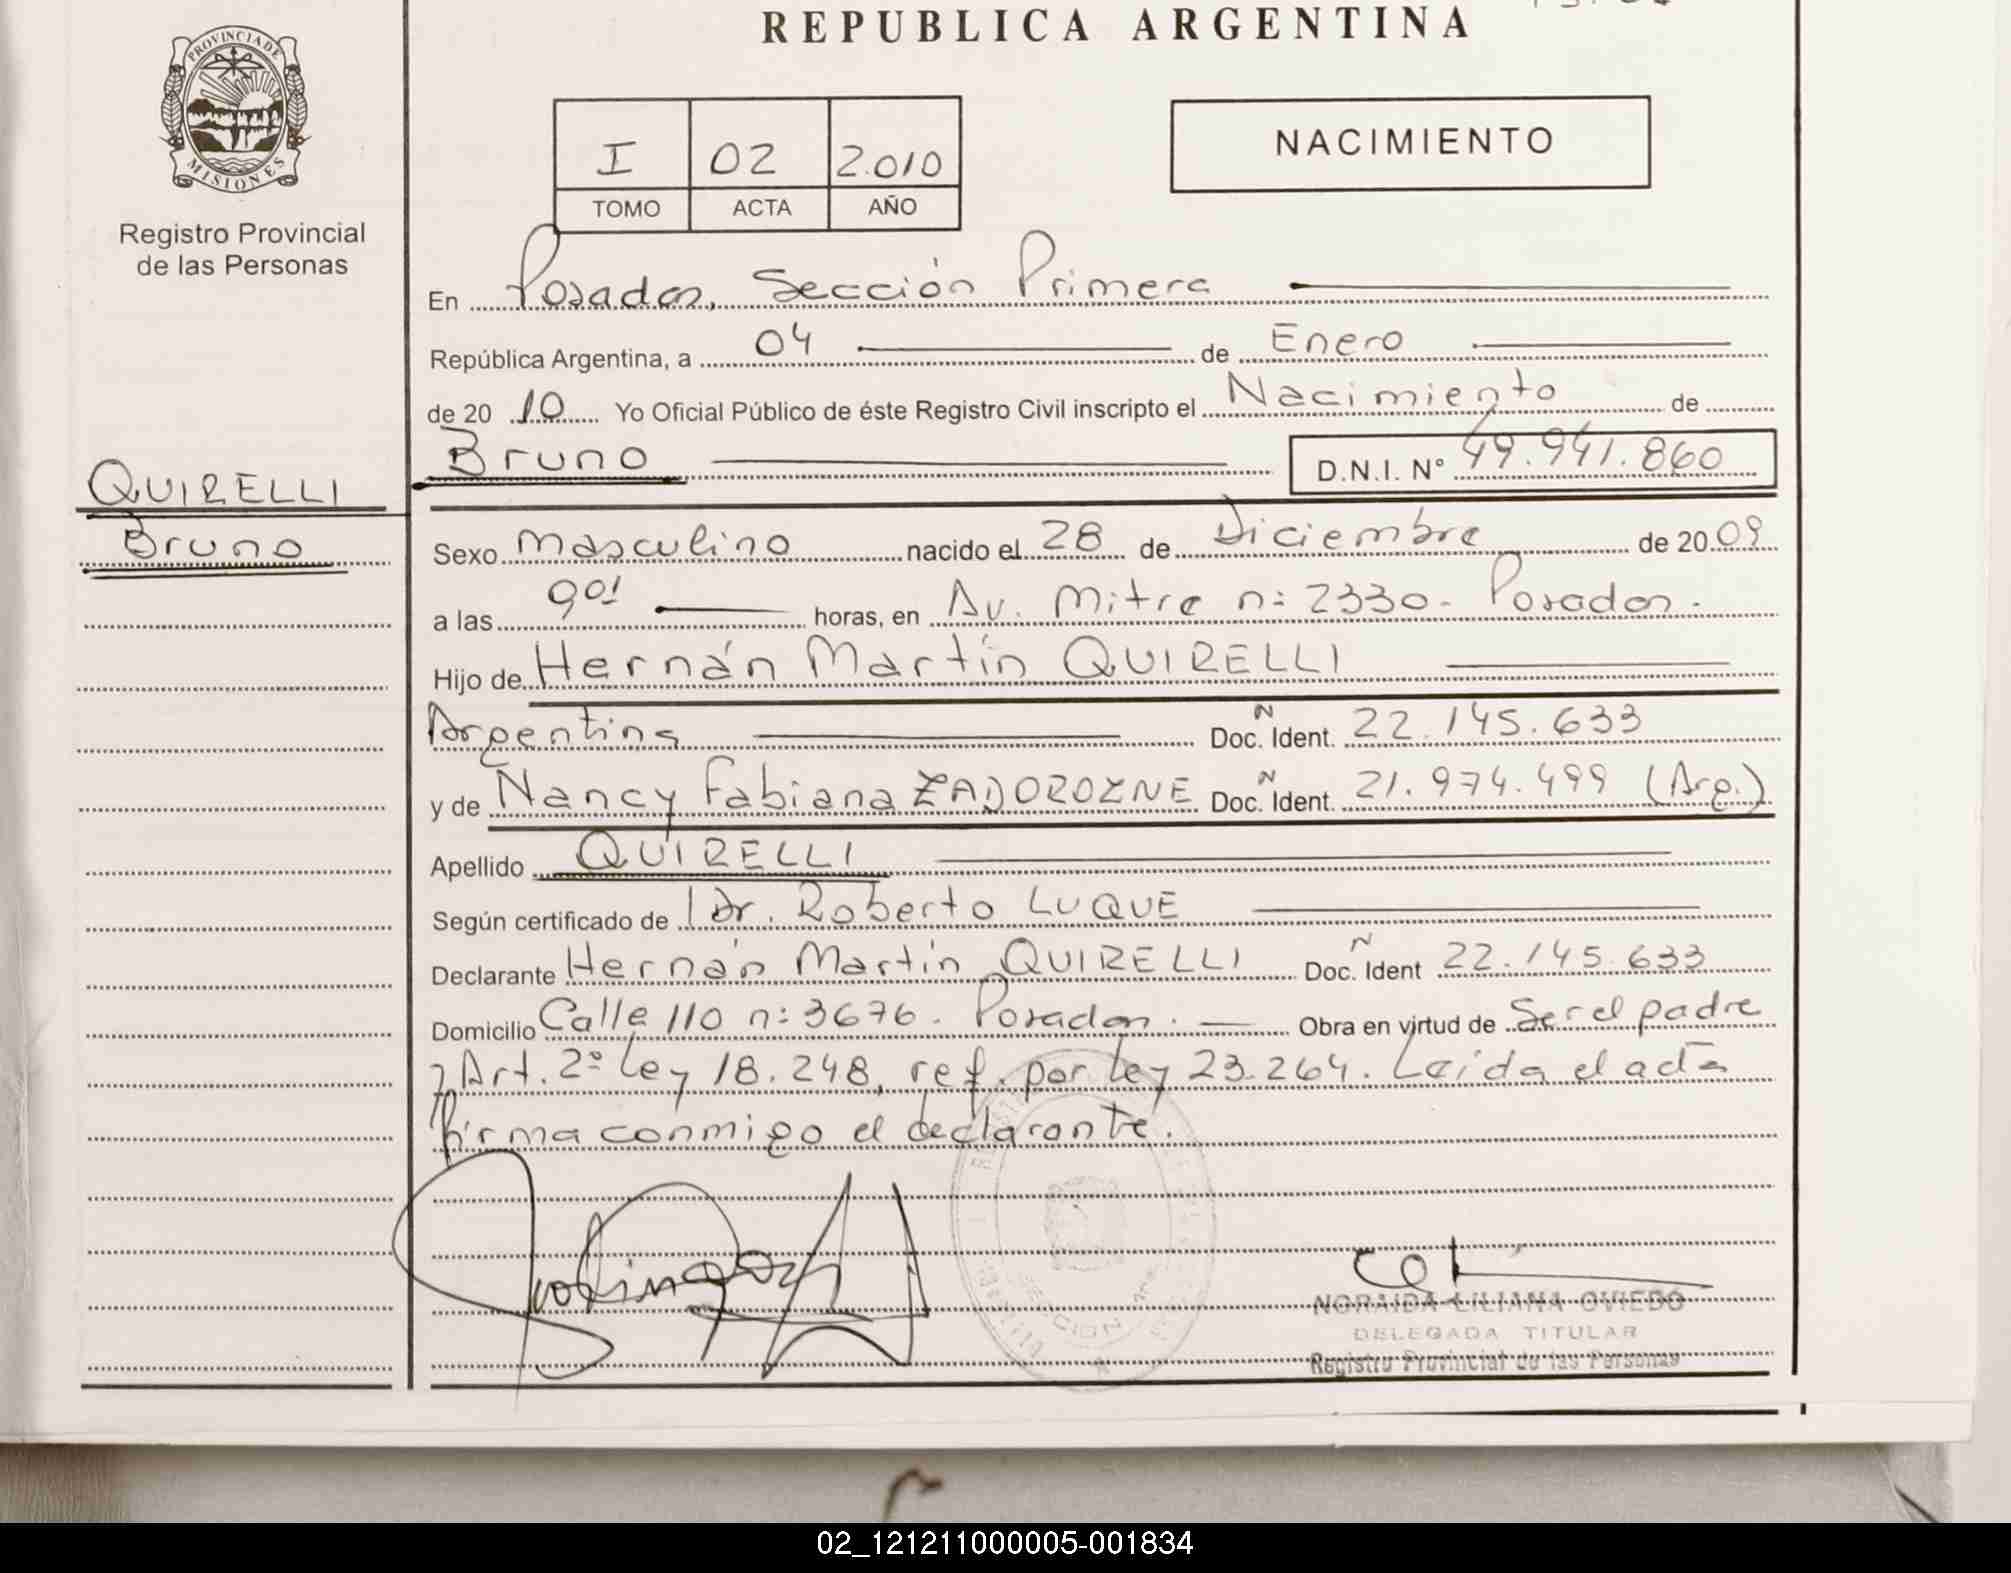 REPUBLICA ARGENTINA
PROVINCIA DE
MISIONES
Registro Provincial
de las Personas
I 02 2.010
TOMO ACTA AÑO
NACIMIENTO
En Posadas, Sección Primera
República Argentina, a 04 de Enero
de 20 10 Yo Oficial Público de éste Registro Civil inscripto el Nacimiento de
Bruno D.N.I. N° 49.941.860
QUIRELLI
Bruno
Sexo Masculino nacido el 28 de Diciembre de 20 09
a las 9 01 horas, en Av. Mitre n: 2330 - Posadas.
Hijo de Hernán Martín QUIRELLI
Argentina Doc. Ñ Ident. 22.145.633
y de Nancy Fabiana ZADOROZNE Doc. Ñ Ident. 21.974.499 (Arg.)
Apellido QUIRELLI
Según certificado de Dr. Roberto LUQUE
Declarante Hernán Martín QUIRELLI Doc. Ñ Ident 22.145.633
Domicilio Calle 110 n: 3676. Posadas. Obra en virtud de Ser el padre
y Art. 2° Ley 18.248, ref. por Ley 23.264. Leída el acta
firma conmigo el declarante.
NORAIDA LILIANA OVIEDO
DELEGADA TITULAR
Registro Provincial de las Personas
02_121211000005-001834